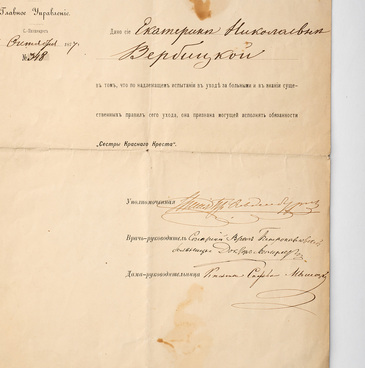 Главное Управленіе.
С.-Петербургъ
Октября 187.
№ 348
Дано сіе Екатеринѣ Николаевнѣ
Вербицкой
въ томъ, что по надлежащемъ испытаніи въ уходѣ за больными и въ знаніи суще-
ственныхъ правилъ сего ухода, она признана могущей исполнять обязанности
„Сестры Краснаго Креста“.
Уполномоченный
Врачъ-руководитель Старшій Врачъ
Докторъ
Дама-руководительница